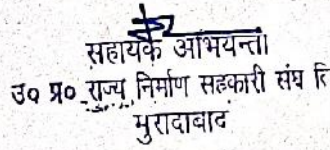 सहायक अभियन्ता
उ० प्र० राज्य निर्माण सहकारी संघ लि
मुरादाबाद